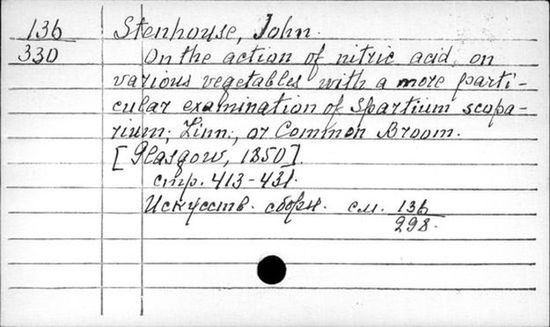 136 Stenhouse, John.
330 On the action of nitric acid, on
various vegetables with a more parti-
cular examination of Spartium scopa-
rium, Linn., or Common Broom.
[Glasgow, 1850].
стр. 413-431.
Искусств. сборн. см. 136
298.